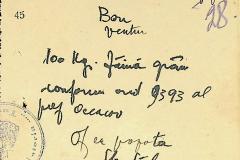 45
28.
Bon
pentru
100 Kg. făină grâu
conform ord 9393 al
pref Oceacov
Of cu popota